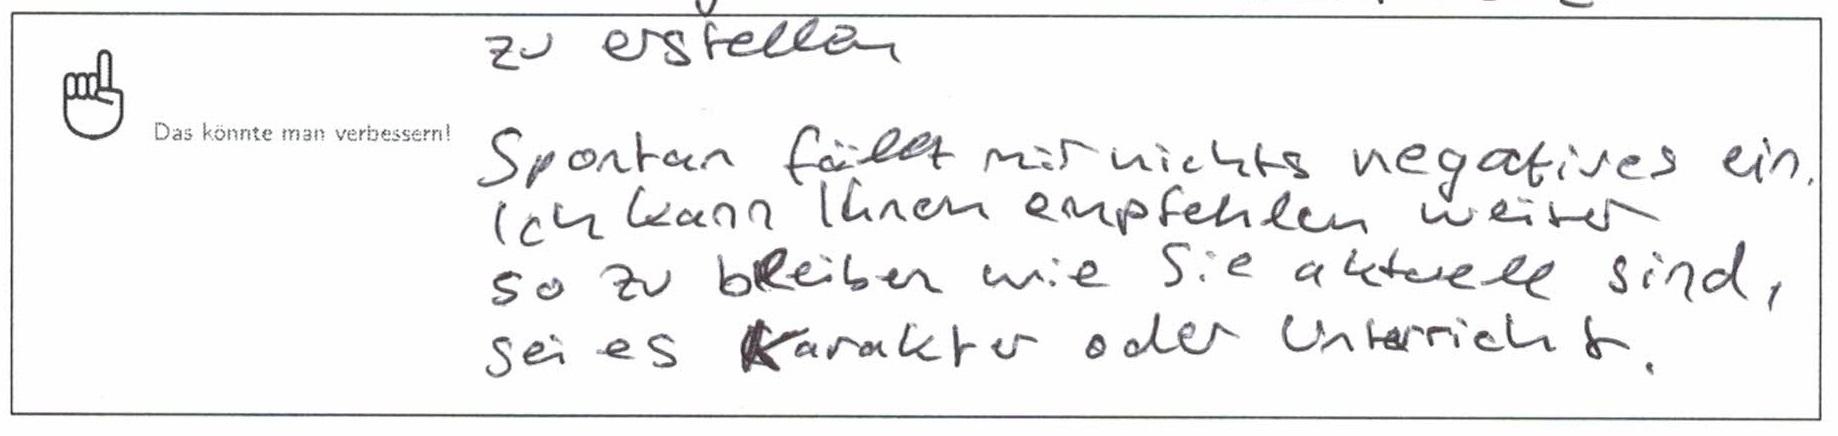 zu erstellen
Das könnte man verbessern!
Spontan fällt mir nichts negatives ein.
Ich kann Ihnen empfehlen weiter
so zu bleiben wie Sie aktuell sind,
sei es Karakter oder Unterricht.